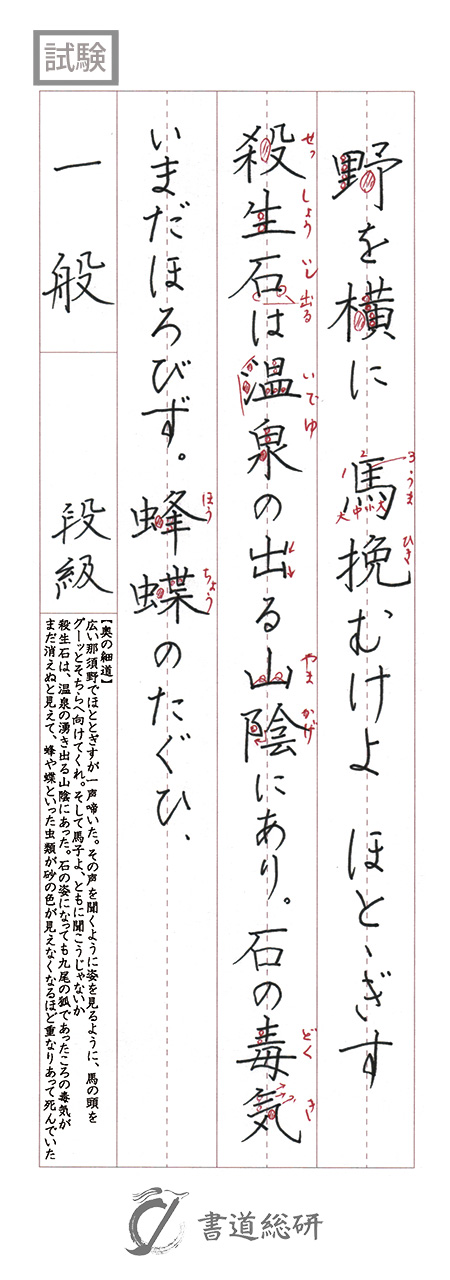 試験
野を横に 馬挽むけよ ほとゝぎす
殺生石は温泉の出る山陰にあり。石の毒気
いまだほろびず。蜂蝶のたぐひ、
せっ しょう いし 出る いでゆ やま かげ どく き
3 うま ひき
1 2
大 中 小 大
ほう ちょう
一般
段級
【奥の細道】
広い那須野でほととぎすが一声啼いた。その声を聞くように姿を見るように、馬の頭を
グーッとそちらへ向けてくれ。そして馬子よ、ともに聞こうじゃないか
殺生石は、温泉の湧き出る山陰にあった。石の姿になっても九尾の狐であったころの毒気が
まだ消えぬと見えて、蜂や蝶といった虫類が砂の色が見えなくなるほど重なりあって死んでいた
書道総研